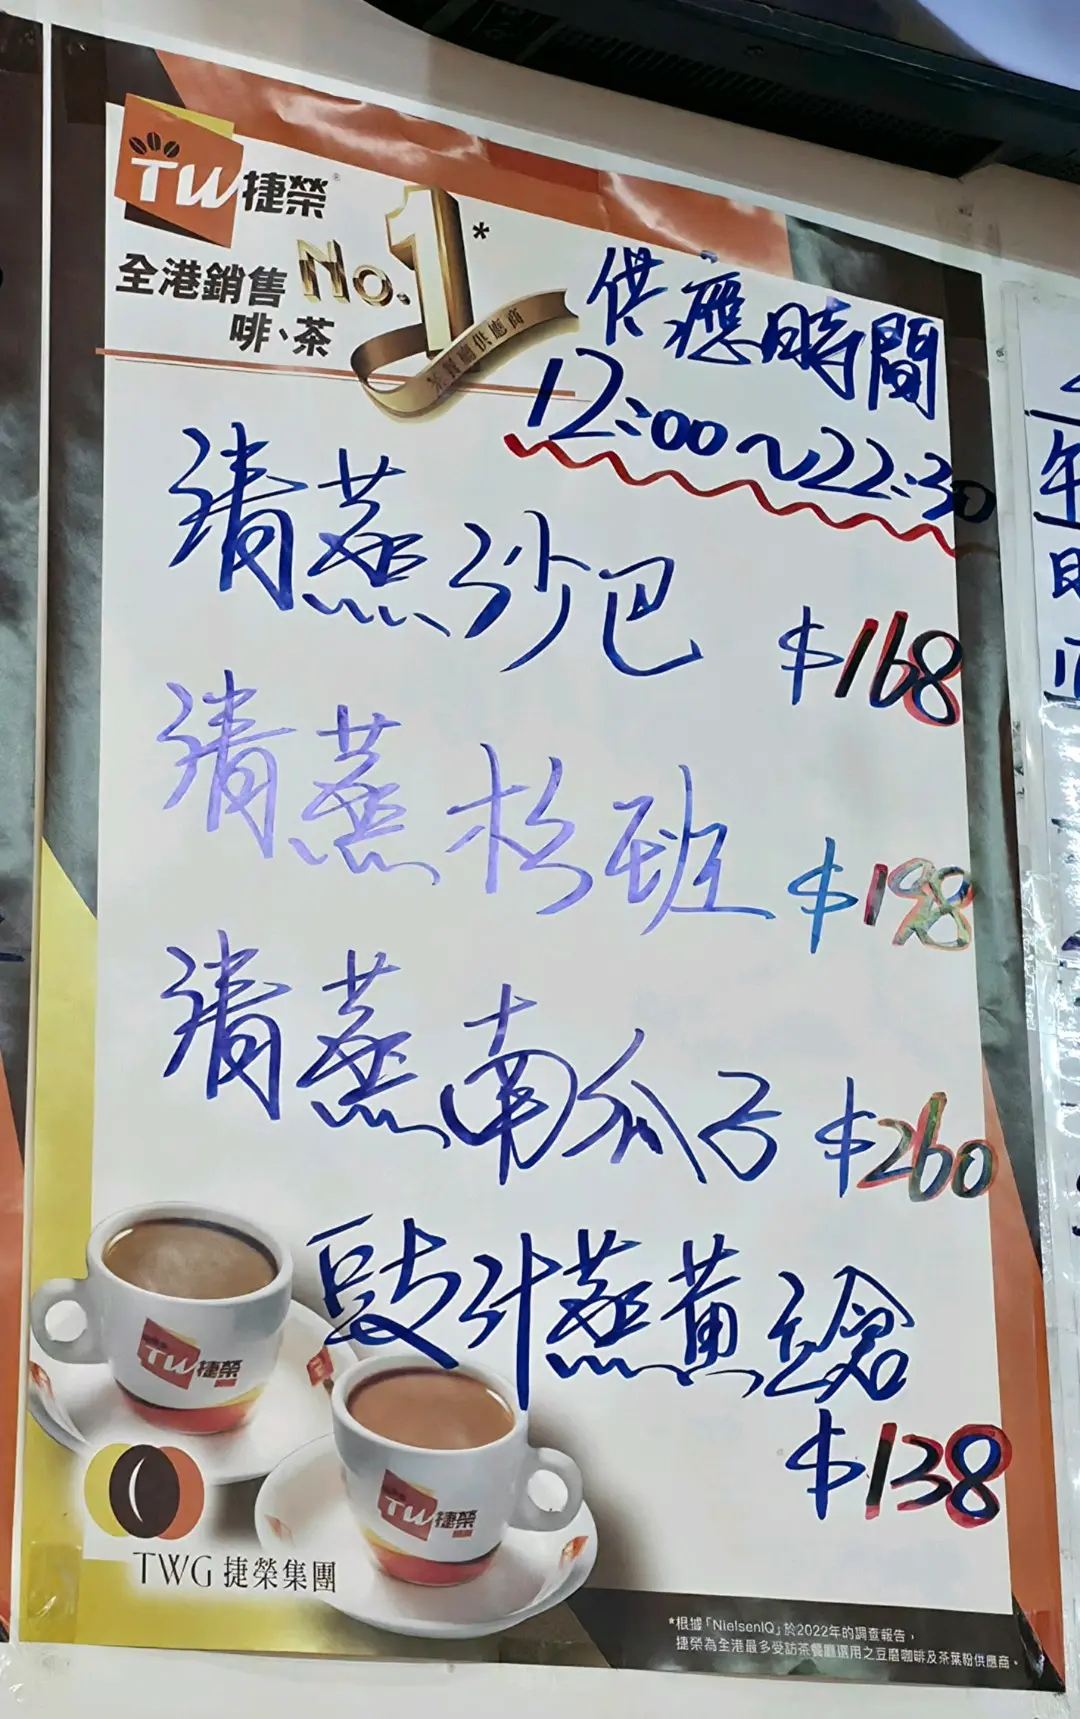 TW捷榮®
全港銷售 No.1*
啡、茶
茶餐廳供應商
供應時間
12:00~22:30
清蒸沙巴 $168
清蒸杉班 $198
清蒸南瓜子 $260
豉汁蒸黃立鯧
$138
TW捷榮
TW捷榮
TWG 捷榮集團
*根據「NielsenIQ」於2022年的調查報告，
捷榮為全港最多受訪茶餐廳選用之豆磨咖啡及茶葉粉供應商。